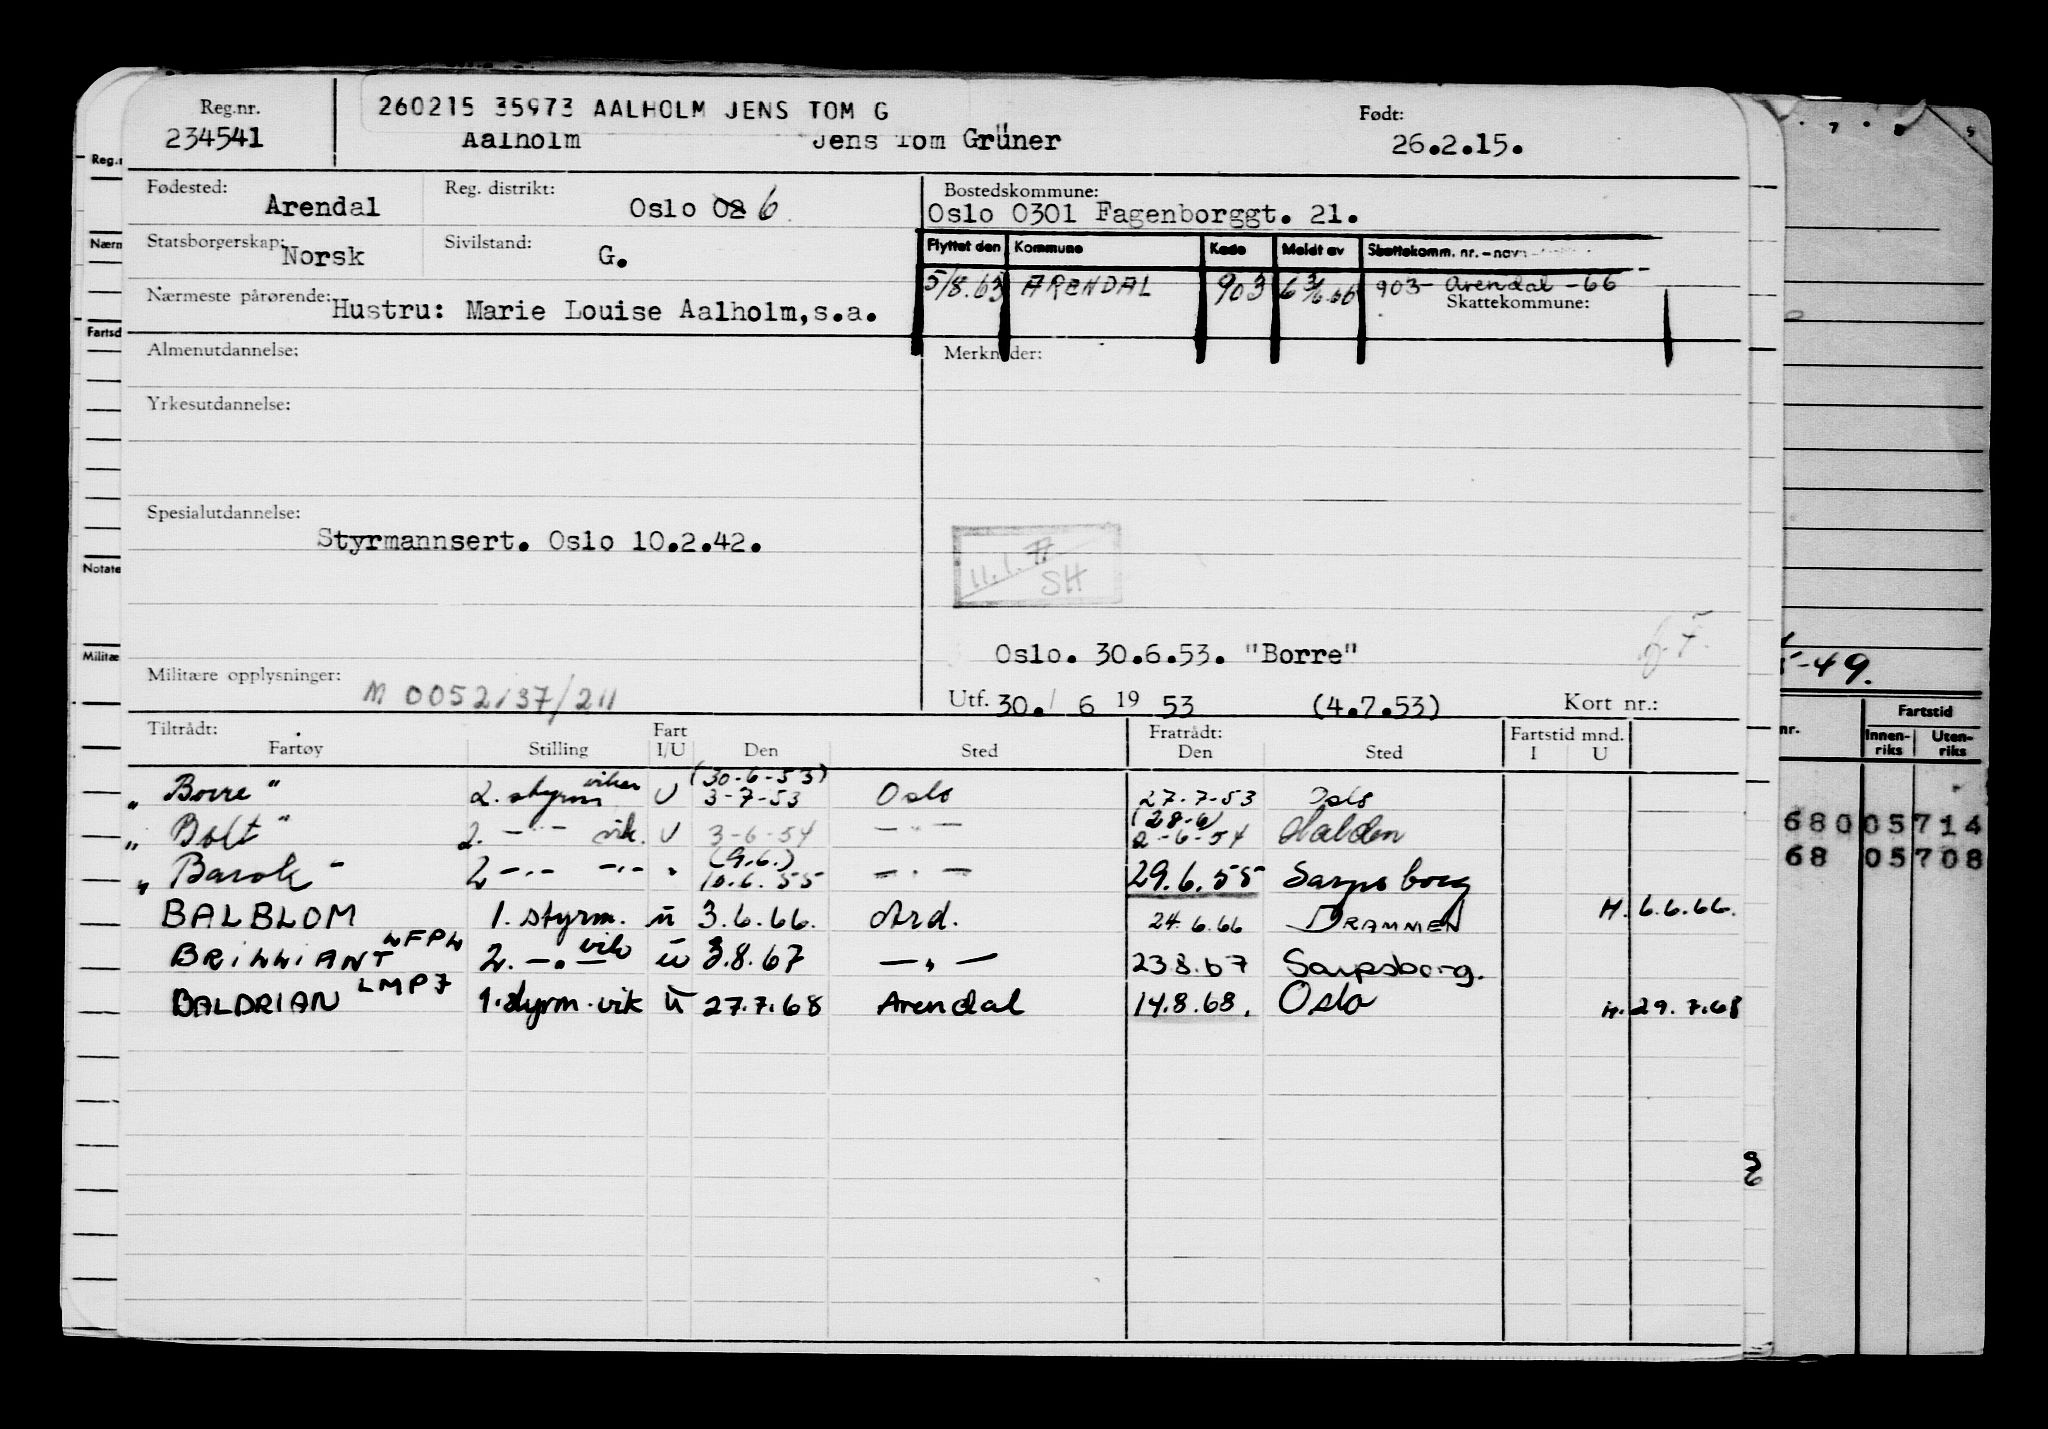 Reg.nr.
234541
260215 35973 AALHOLM JENS TOM G
Aalholm Jens Tom Grüner
Født:
26.2.15.
Fødested: Arendal
Reg. distrikt: Oslo 02 6
Bostedskommune:
Oslo 0301 Fagenborggt. 21.
Statsborgerskap: Norsk
Sivilstand: G.
Flyttet den Kommune Kode Meldt av Skattekomm. nr. - navn
5/8.63 ARENDAL 903 903 Arendal -66
Skattekommune:
Nærmeste pårørende: Hustru: Marie Louise Aalholm,s.a.
Almenutdannelse:
Merknader:
Yrkesutdannelse:
Spesialutdannelse:
Styrmannsert. Oslo 10.2.42.
11.1.77
SH
Oslo. 30.6.53. "Borre"
Militære opplysninger: M 0052137/211
Utf. 30. 6 19 53 (4.7.53) Kort nr.:
Tiltrådt: Fratrådt: Fartstid mnd.
Fartøy Stilling Fart I/U Den Sted Den Sted I U
" Borre " 2. styrm vikar U (30-6-53) 3-7-53 Oslo 27.7-53 Oslo
" Bolt " 2. -"- vik. U 3-6-54 -"- (28-6) 2-6-54 Halden
" Barok " 2 -"- -"- " (9.6.) 10.6.55 -"- 29.6.55 Sarpsborg
BALBLOM 1. styrm. u 3.6.66. Ard. 24.6.66 DRAMMEN H. 6.6.66.
BRILLIANT LFPL 2. -"- vik u 3.8.67 -"- 23.8.67 Sarpsborg.
BALDRIAN LMPJ 1. styrm. vik u 27.7.68 Arendal 14.8.68. Oslo H. 29.7.68
Reg.n
Nærm
Fartsd
Notate
Militæ
-49.
nr. Fartstid
Innen-riks Uten-riks
68 0 05 714
68 05 708